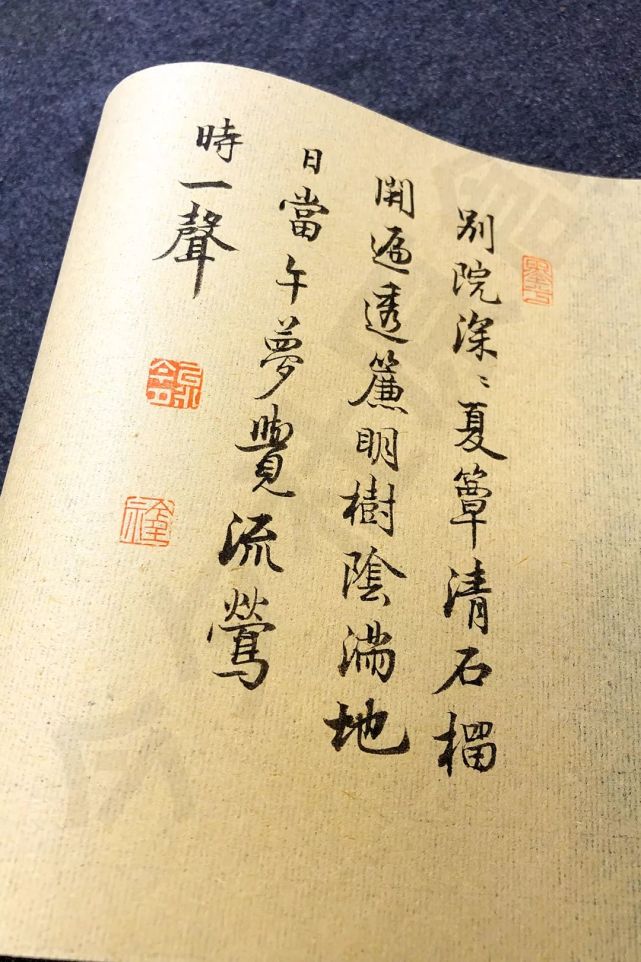 別院深〻夏簟清石榴
開遍透簾明樹陰滿地
日當午夢覺流鶯
時一聲